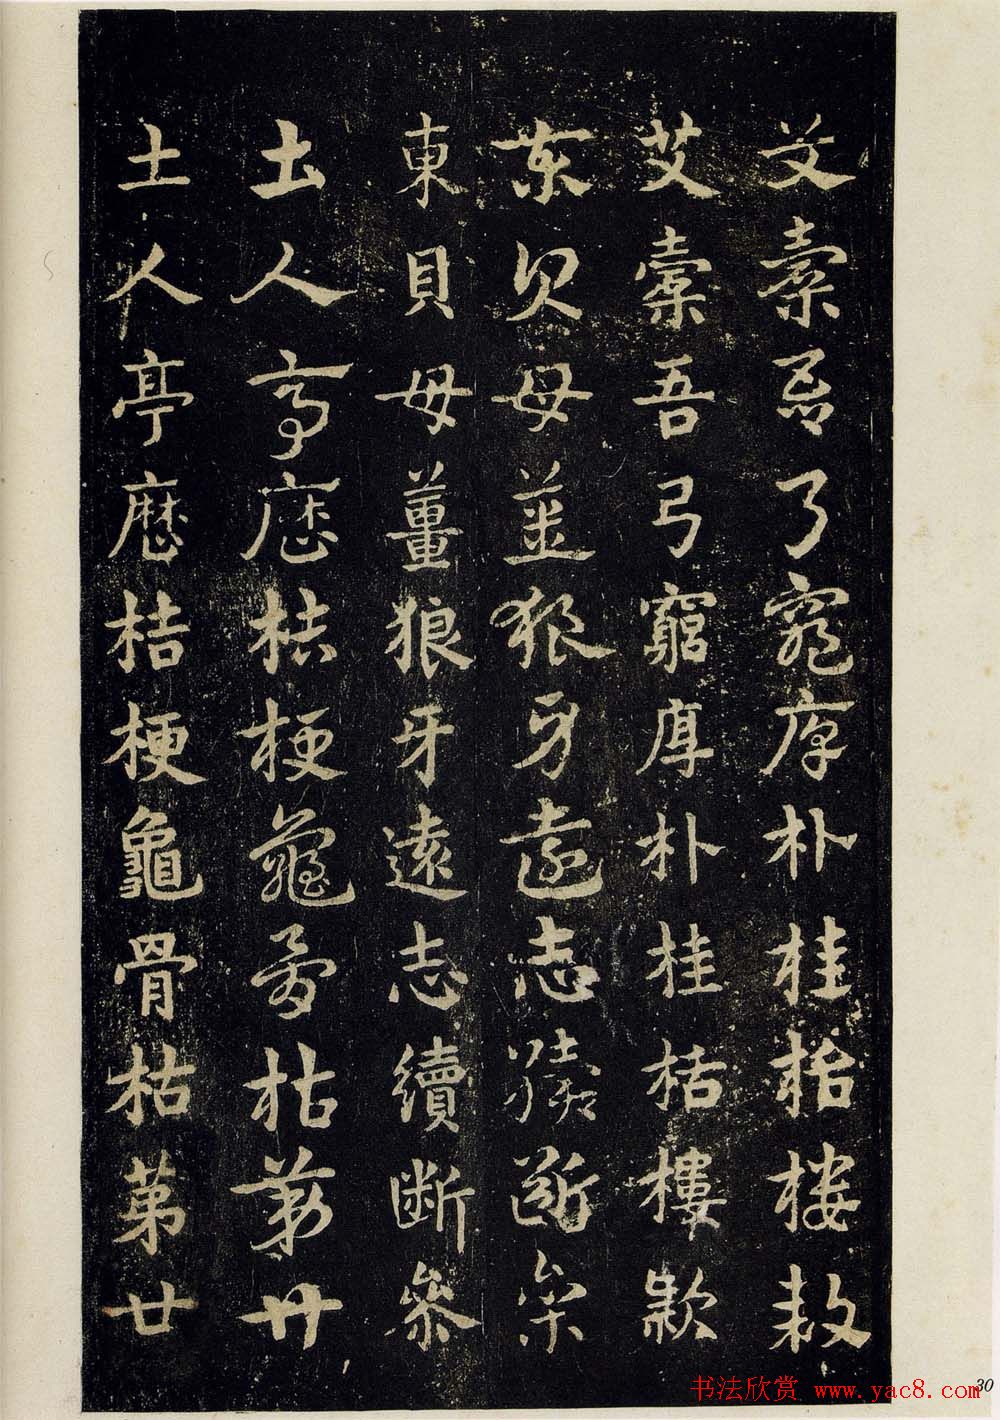 艾橐吾弓窮厚朴桂栝樓款
艾橐吾弓窮厚朴桂栝樓款
東貝母薑狼牙遠志續斷參
東貝母薑狼牙遠志續斷參
土人亭歷桔梗龜骨枯第廿
土人亭歷桔梗龜骨枯第廿
书法欣赏 www.yac8.com
30